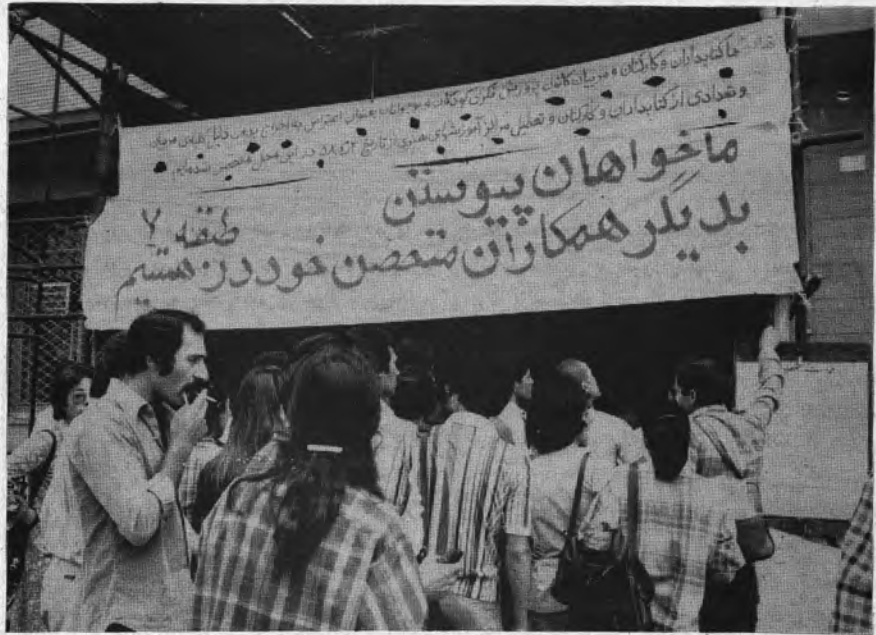 ما کتابداران و کارکنان و مربیان کانون پرورش فکری کودکان و نوجوانان بعنوان اعتراض به اخراج بدون دلیل مربیان
و تعدادی از کتابداران و کارکنان و تعطیل مراکز آموزشهای هنری از تاریخ در این محل متحصن شده‌ایم
ما خواهان پیوستن
بدیگر همکاران متحصن خود در طبقه ۷ هستیم